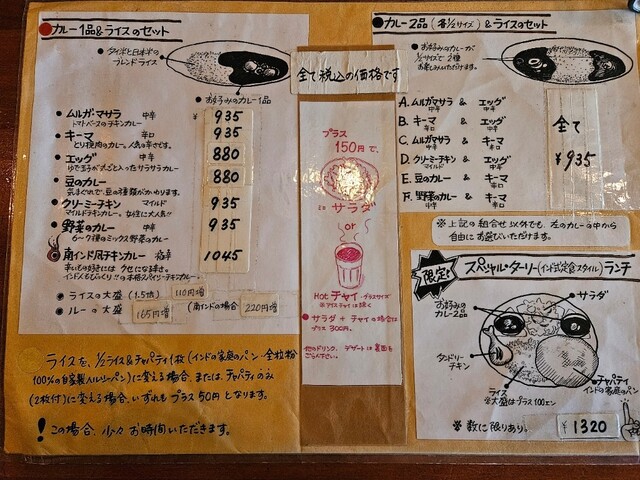 カレー1品&ライスのセット
タイ米と日本米の
ブレンドライス
お好みのカレー1品
ムルガ・マサラ 中辛 ¥935
トマトベースのチキンカレー
キーマ 辛口 935
とり挽肉のカレー。人気の辛さです。
エッグ 中辛 880
ゆで玉子が丸ごと入ったサラサラカレー
豆のカレー 880
気まぐれで、豆の種類がかわります。
クリーミーチキン マイルド 935
マイルドチキンカレー。女性に大人気!!
野菜のカレー 中辛 935
6〜7種のミックス野菜のカレー
南インド風チキンカレー 極辛 1045
辛いもの好きには クセになる辛さ。
インド人もびっくり!!の本格スパイシーチキンカレー。
ライスの大盛 (1.5倍) 110円増
ルーの大盛 165円増 (南インドの場合 220円増)
ライスを、1/2ライス&チャパティ1枚(インドの家庭のパン・全粒粉
100%の自家製ヘルシーパン)に変える場合、または、チャパティのみ
(2枚付)に変える場合、いずれも プラス 50円 となります。
! この場合、少々 お時間いただきます。
全て税込の価格です
プラス
150円で、
ミニ サラダ
or
Hot チャイ・グラスサイズ
※アイスチャイは除く
サラダ + チャイの場合は
プラス 300円。
他のドリンク、デザートは裏面を
ごらん下さい。
カレー2品 (各1/2サイズ) &ライスのセット
お好みのカレーが
1/2サイズで 2種
お楽しみいただけます。
A. ムルガマサラ 中辛 & エッグ 中辛
B. キーマ 辛口 & エッグ 中辛
C. ムルガマサラ 中辛 & キーマ 辛口
D. クリーミーチキン マイルド & エッグ 中辛
E. 豆のカレー & キーマ 辛口
F. 野菜のカレー 中辛 & キーマ 辛口
全て
¥935
※上記の組合せ以外でも、左のカレーの中から
自由にお選びいただけます。
限定!
スペシャル・ターリー(インド式定食スタイル) ランチ
お好みの
カレー2品
サラダ
タンドリー
チキン
ライス
※大盛はプラス100エン
チャパティ
インドの家庭のパン
※数に限りあり。
¥1320